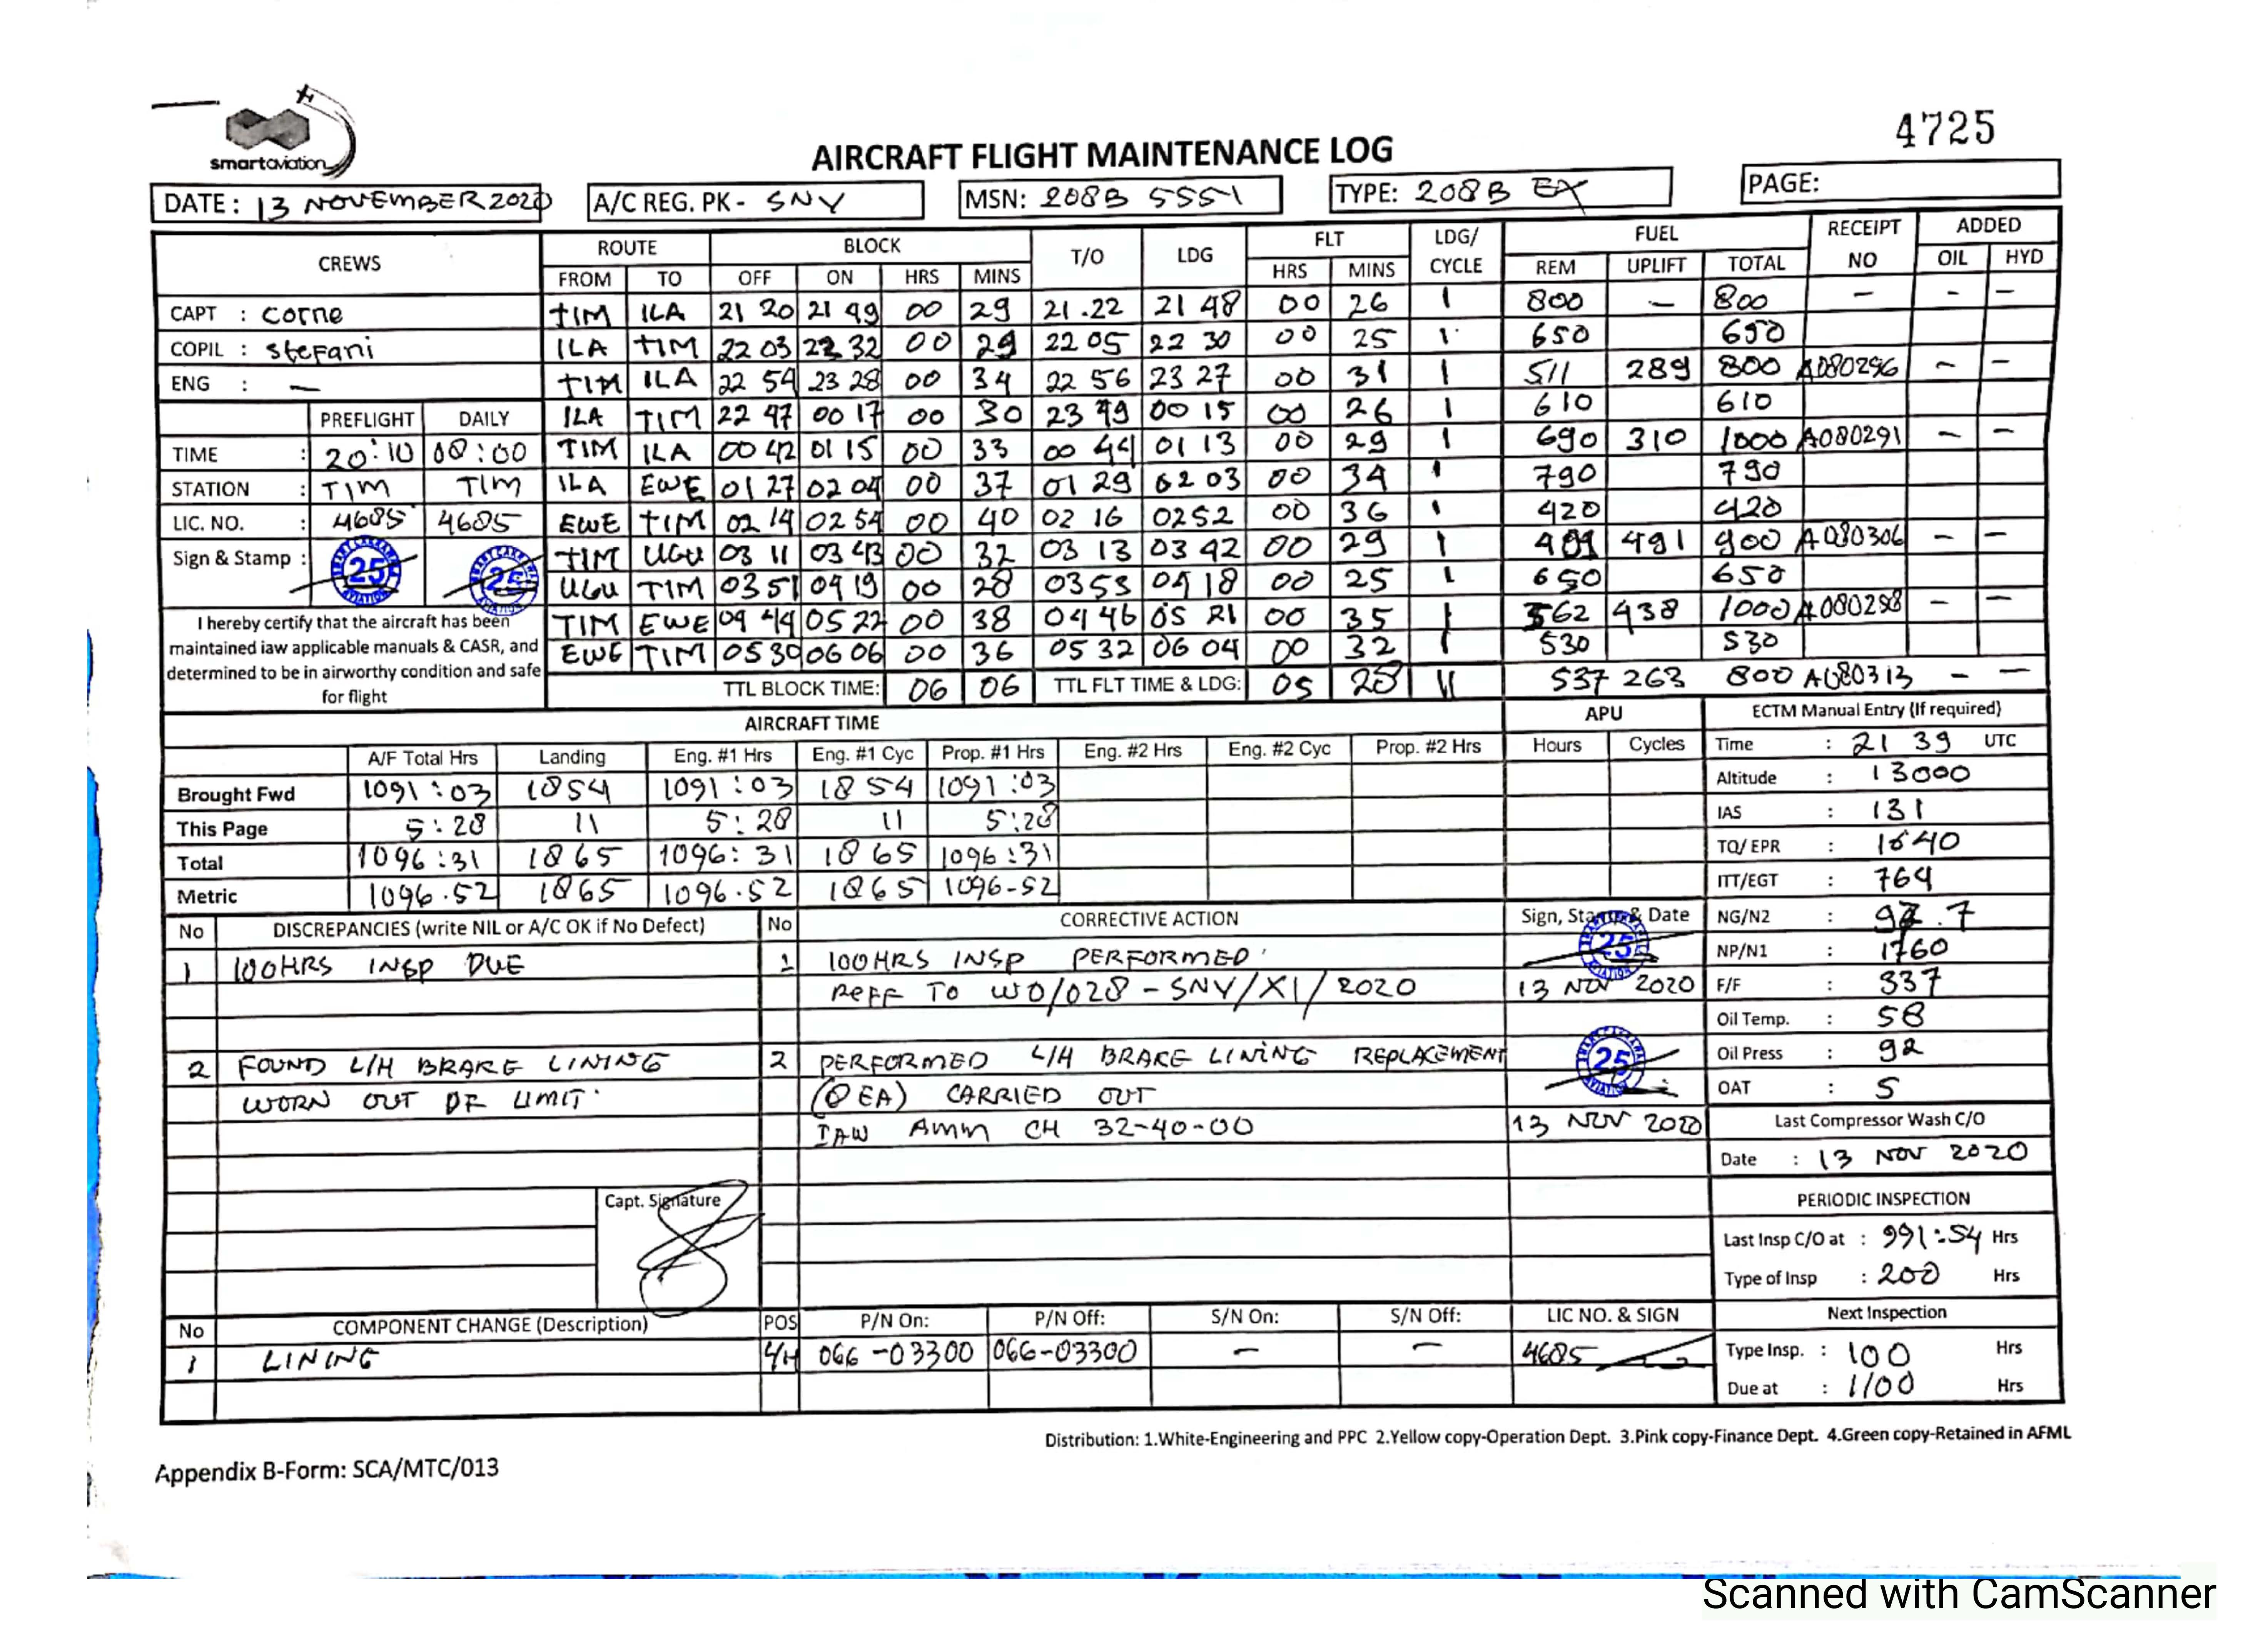 smartaviation
4725
AIRCRAFT FLIGHT MAINTENANCE LOG
DATE: 13 NOVEMBER 2020 A/C REG. PK- SNY MSN: 208B 5551 TYPE: 208B EX PAGE:
CREWS ROUTE BLOCK T/O LDG FLT LDG/ CYCLE FUEL RECEIPT NO ADDED
FROM TO OFF ON HRS MINS HRS MINS REM UPLIFT TOTAL OIL HYD
CAPT : Corne TIM ILA 21 20 21 49 00 29 21.22 21 48 00 26 1 800 — 800 — - —
COPIL : Stefani ILA TIM 22 03 22 32 00 29 22 05 22 30 00 25 1 650 650
ENG : — TIM ILA 22 54 23 28 00 34 22 56 23 27 00 31 1 511 289 800 A080296 — —
PREFLIGHT DAILY ILA TIM 22 47 00 17 00 30 23 49 00 15 00 26 1 610 610
TIME : 20:10 08:00 TIM ILA 00 42 01 15 00 33 00 44 01 13 00 29 1 690 310 1000 A080291 — —
STATION : TIM TIM ILA EWE 01 27 02 04 00 37 01 29 02 03 00 34 1 790 790
LIC. NO. : 4685 4685 EWE TIM 02 14 02 54 00 40 02 16 02 52 00 36 1 420 420
Sign & Stamp : 25 25 TIM UGU 03 11 03 43 00 32 03 13 03 42 00 29 1 491 900 A080306 — —
UGU TIM 03 51 04 19 00 28 03 53 04 18 00 25 1 650 650
I hereby certify that the aircraft has been TIM EWE 04 44 05 22 00 38 04 46 05 21 00 35 1 562 438 1000 A080298 — —
maintained iaw applicable manuals & CASR, and EWE TIM 05 30 06 06 00 36 05 32 06 04 00 32 1 530 530
determined to be in airworthy condition and safe
for flight TTL BLOCK TIME: 06 06 TTL FLT TIME & LDG: 05 28 11 537 263 800 A080313 — —
AIRCRAFT TIME APU ECTM Manual Entry (If required)
A/F Total Hrs Landing Eng. #1 Hrs Eng. #1 Cyc Prop. #1 Hrs Eng. #2 Hrs Eng. #2 Cyc Prop. #2 Hrs Hours Cycles Time : 21 39 UTC
Brought Fwd 1091:03 1854 1091:03 1854 1091:03 Altitude : 13000
This Page 5:28 11 5:28 11 5:28 IAS : 131
Total 1096:31 1865 1096:31 1865 1096:31 TQ/ EPR : 1640
Metric 1096.52 1865 1096.52 1865 1096-52 ITT/EGT : 764
No DISCREPANCIES (write NIL or A/C OK if No Defect) No CORRECTIVE ACTION Sign, Stamp & Date NG/N2 :
1 100HRS INSP DUE 1 100HRS INSP PERFORMED 25 NP/N1 : 1760
REFF TO WO/028-SNY/XI/2020 13 NOV 2020 F/F : 337
Oil Temp. : 58
2 FOUND L/H BRAKE LINING 2 PERFORMED L/H BRAKE LINING REPLACEMENT 25 Oil Press : 92
WORN OUT OF LIMIT. EA) CARRIED OUT OAT : 5
IAW AMM CH 32-40-00 13 NOV 2020 Last Compressor Wash C/O
Date : 13 NOV 2020
Capt. Signature PERIODIC INSPECTION
Last Insp C/O at : 991:54 Hrs
Type of Insp : 200 Hrs
No COMPONENT CHANGE (Description) POS P/N On: P/N Off: S/N On: S/N Off: LIC NO. & SIGN Next Inspection
1 LINING L/H 066-03300 066-03300 — — 4685 Type Insp. : 100 Hrs
Due at : 1100 Hrs
Distribution: 1.White-Engineering and PPC 2.Yellow copy-Operation Dept. 3.Pink copy-Finance Dept. 4.Green copy-Retained in AFML
Appendix B-Form: SCA/MTC/013
Scanned with CamScanner